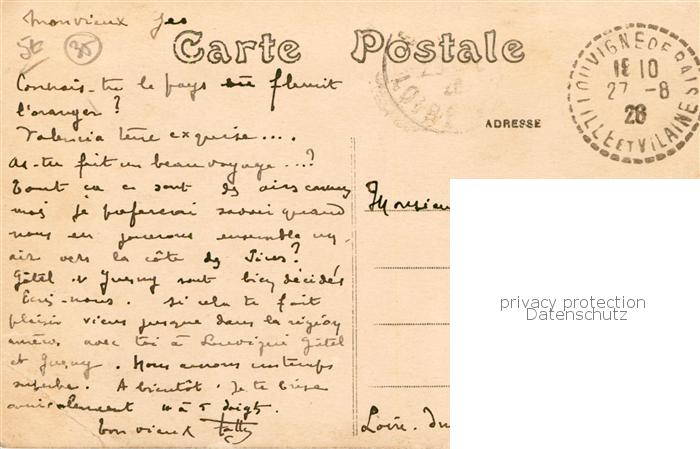 Mon vieux
5t 35
Carte Postale
Connais-tu le pays où fleurit
l'oranger ?
Valencia terre exquise...
As-tu fait un beau voyage ...?
Tout ça ce sont des airs connus
mais je préfèrerai savoir quand
nous en jouerons ensemble un
air vers la côte des
Gâtel et sont bien décidés
Ecris-nous. Si cela te fait
plaisir viens jusque dans la région
avec toi à Louvigné Gâtel
et . Nous aurons un temps
superbe. A bientôt. Je te
amicalement 4 à 5 doigts.
ton vieux
ADRESSE
LOUVIGNE DE BAIS
18 10
27 - 8
28
ILLE ET VILAINE
Monsieur
Loire. du
privacy protection
Datenschutz